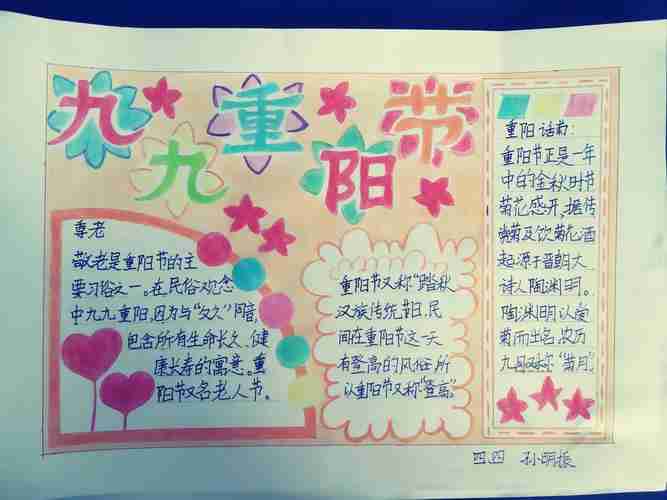 九九重阳节
尊老
敬老是重阳节的主
要习俗之一。在民俗观念
中九九重阳，因为与“久久”同音，
包含所有生命长久、健
康长寿的寓意。重
阳节又名老人节。
重阳节又称“踏秋
汉族传统节日，民
间在重阳节这一天
有登高的风俗，所
以重阳节又称“登高”
重阳话菊：
重阳节正是一年
中的金秋时节
菊花盛开，据传
赏菊及饮菊花酒
起源于晋朝大
诗人陶渊明。
陶渊明以
菊而出名，农历
九月又称“菊月”。
四四 孙明振